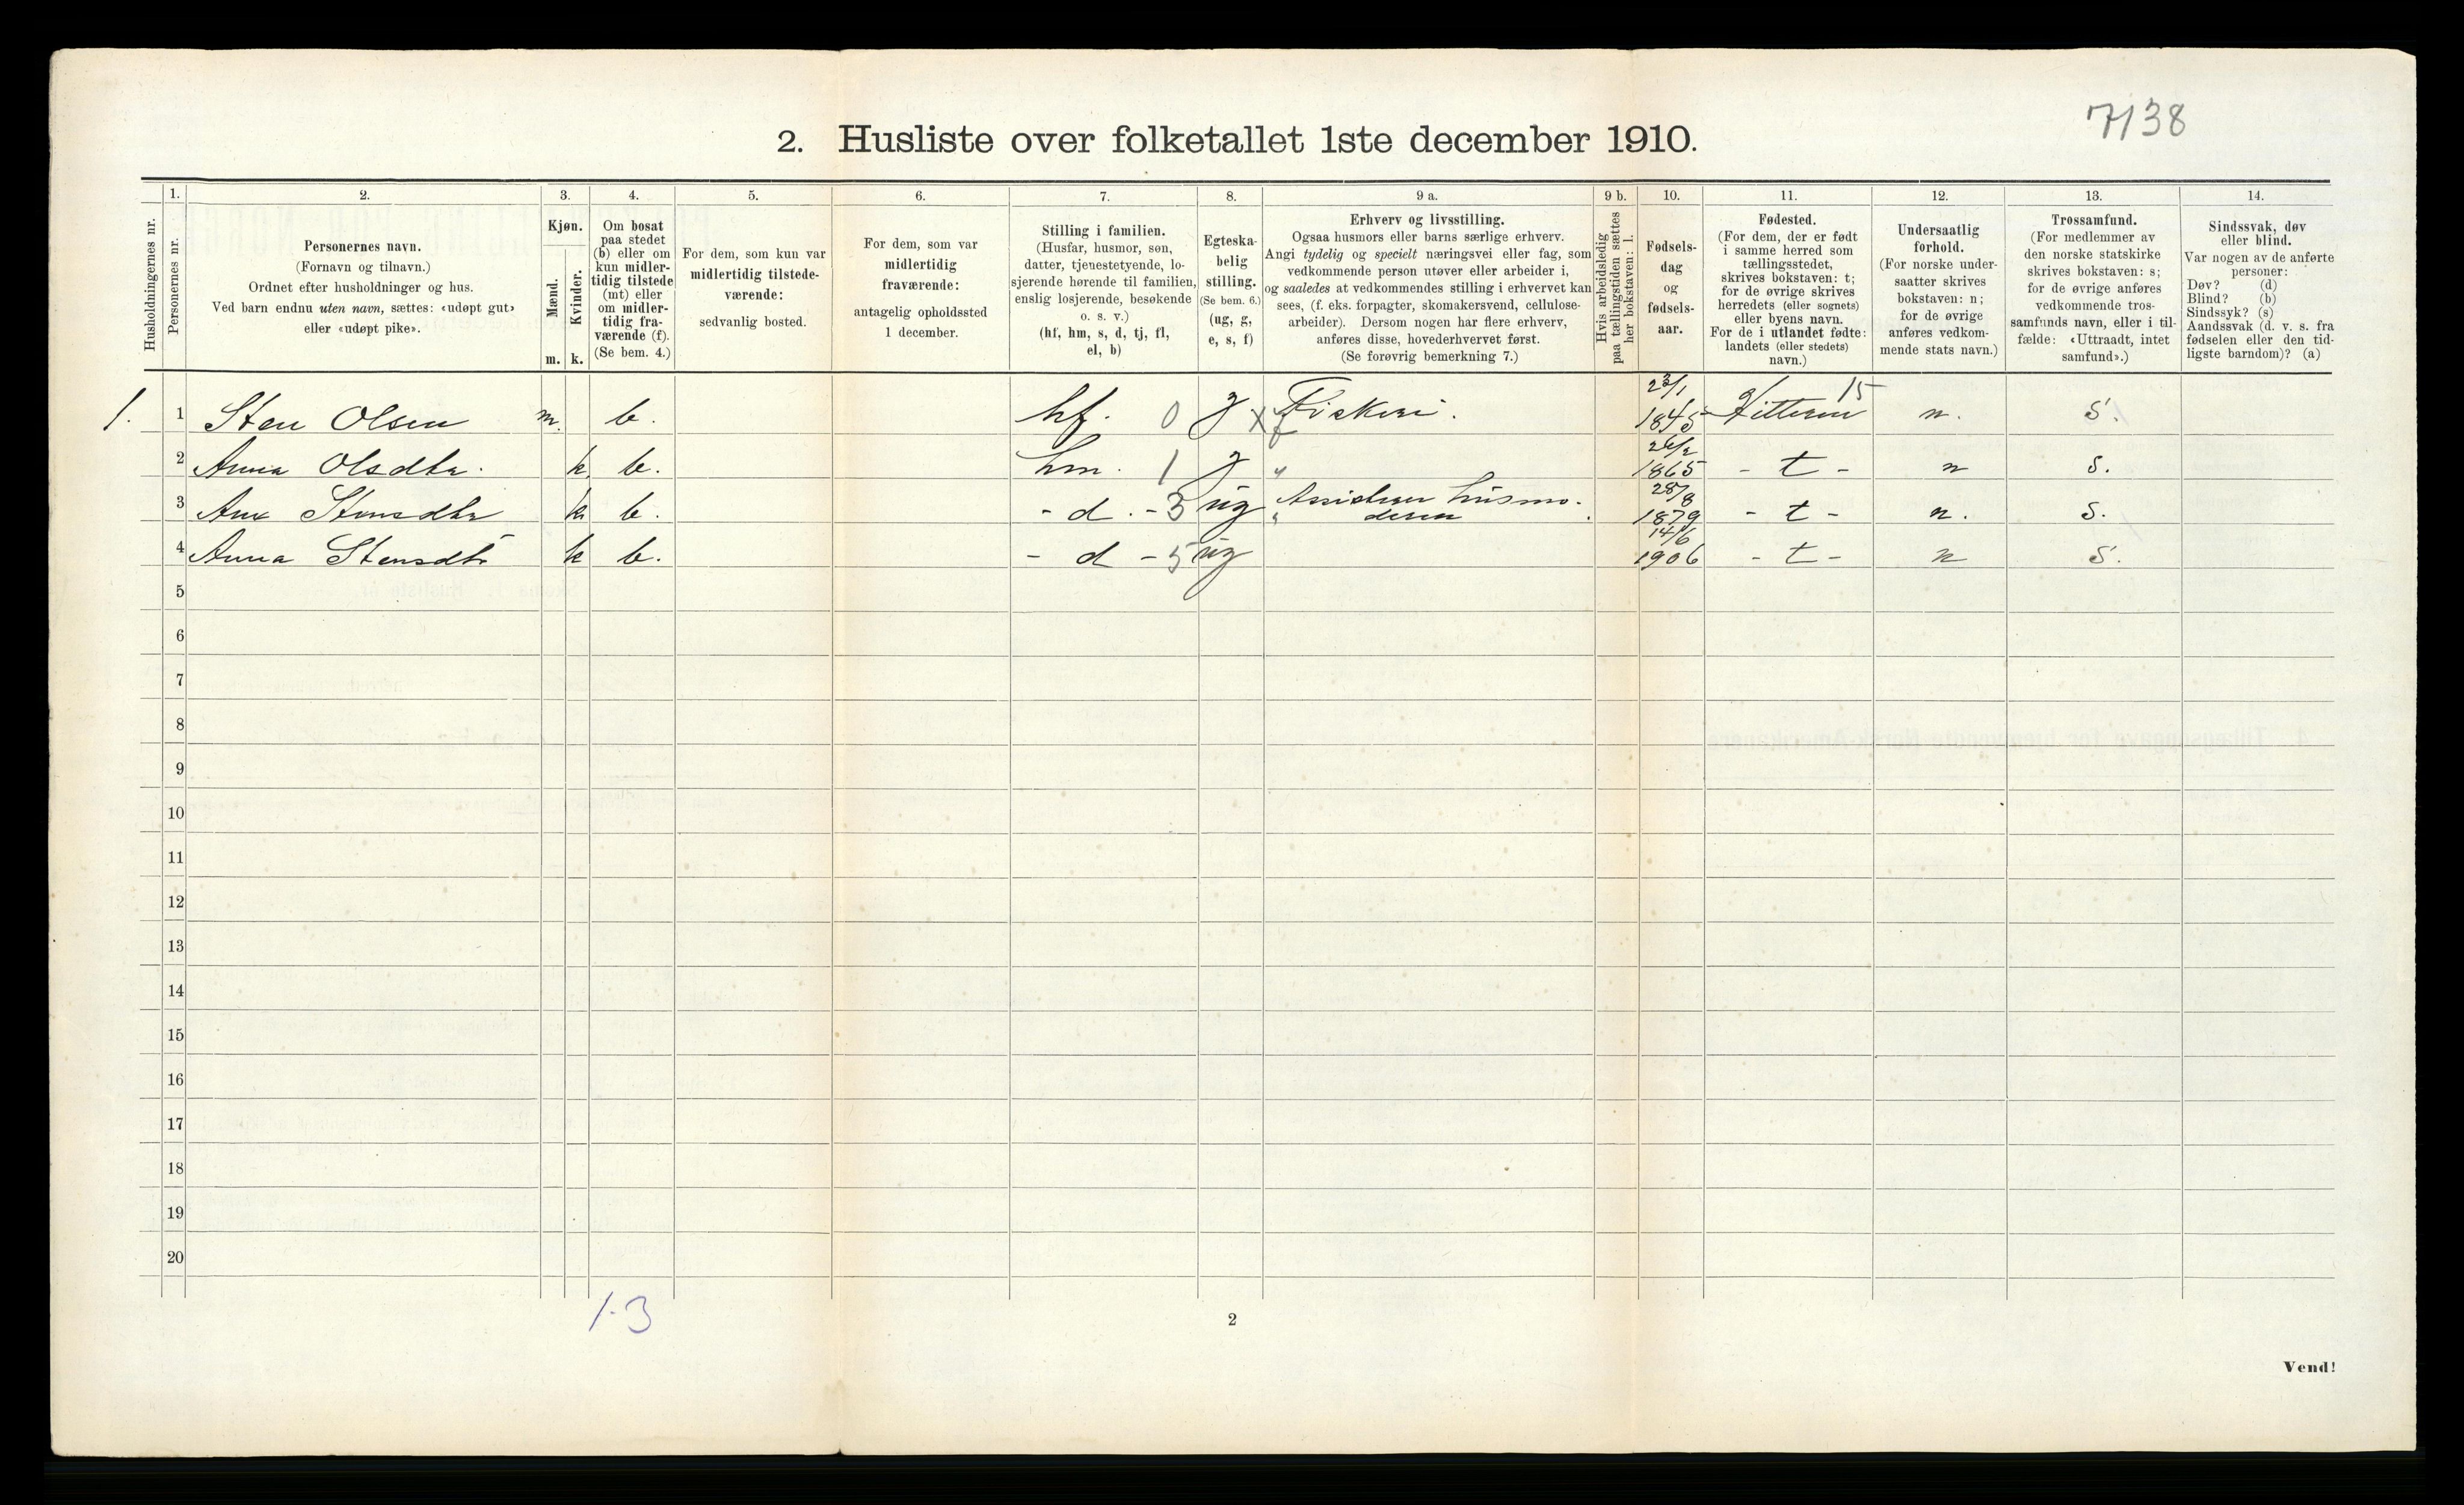 7138
2. Husliste over folketallet 1ste december 1910.
Husholdningernes nr.
1.
Personernes nr.
2.
Personernes navn.
(Fornavn og tilnavn.)
Ordnet efter husholdninger og hus.
Ved barn endnu uten navn, sættes: «udøpt gut»
eller «udøpt pike».
3.
Kjøn.
Mænd.
Kvinder.
m. k.
4.
Om bosat
paa stedet
(b) eller om
kun midler-
tidig tilstede
(mt) eller
om midler-
tidig fra-
værende (f).
(Se bem. 4.)
5.
For dem, som kun var
midlertidig tilstede-
værende:
sedvanlig bosted.
6.
For dem, som var
midlertidig
fraværende:
antagelig opholdssted
1 december.
7.
Stilling i familien.
(Husfar, husmor, søn,
datter, tjenestetyende, lo-
sjerende hørende til familien,
enslig losjerende, besøkende
o. s. v.)
(hf, hm, s, d, tj, fl,
el, b)
8.
Egteska-
belig
stilling.
(Se bem. 6.)
(ug, g,
e, s, f)
9 a.
Erhverv og livsstilling.
Ogsaa husmors eller barns særlige erhverv.
Angi tydelig og specielt næringsvei eller fag, som
vedkommende person utøver eller arbeider i,
og saaledes at vedkommendes stilling i erhvervet kan
sees, (f. eks. forpagter, skomakersvend, cellulose-
arbeider). Dersom nogen har flere erhverv,
anføres disse, hovederhvervet først.
(Se forøvrig bemerkning 7.)
9 b.
Hvis arbeidsledig
paa tællingstiden sættes
her bokstaven: l.
10.
Fødsels-
dag
og
fødsels-
aar.
11.
Fødested.
(For dem, der er født
i samme herred som
tællingsstedet,
skrives bokstaven: t;
for de øvrige skrives
herredets (eller sognets)
eller byens navn.
For de i utlandet fødte:
landets (eller stedets)
navn.)
12.
Undersaatlig
forhold.
(For norske under-
saatter skrives
bokstaven: n;
for de øvrige
anføres vedkom-
mende stats navn.)
13.
Trossamfund.
(For medlemmer av
den norske statskirke
skrives bokstaven: s;
for de øvrige anføres
vedkommende tros-
samfunds navn, eller i til-
fælde: «Uttraadt, intet
samfund».)
14.
Sindssvak, døv
eller blind.
Var nogen av de anførte
personer:
Døv? (d)
Blind? (b)
Sindssyk? (s)
Aandssvak (d. v. s. fra
fødselen eller den tid-
ligste barndom)? (a)
1. 1 Sten Olsen m. b. hf. 0 g x Fiskeri. 23/1 1845 Hitteren 15 n. s.
2 Anna Olsdtr. k. b. hm. 1 g " 26/2 1865 - t - n s.
3 Ane Stensdtr k b. - d. - 3 ug Assisterer husmo-
deren. 28/8 1879 - t - n. s.
4 Anna Stensdtr k b. - d - 5 ug 14/6 1906 - t - n s.
5
6
7
8
9
10
11
12
13
14
15
16
17
18
19
20
1-3
2
Vend!